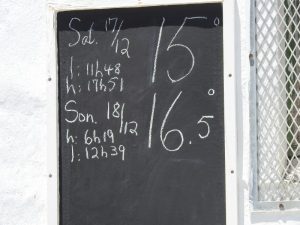 Sat. 17/12 15°
l: 11h48
h: 17h51
Son. 18/12 16.5°
h: 6h19
l: 12h39